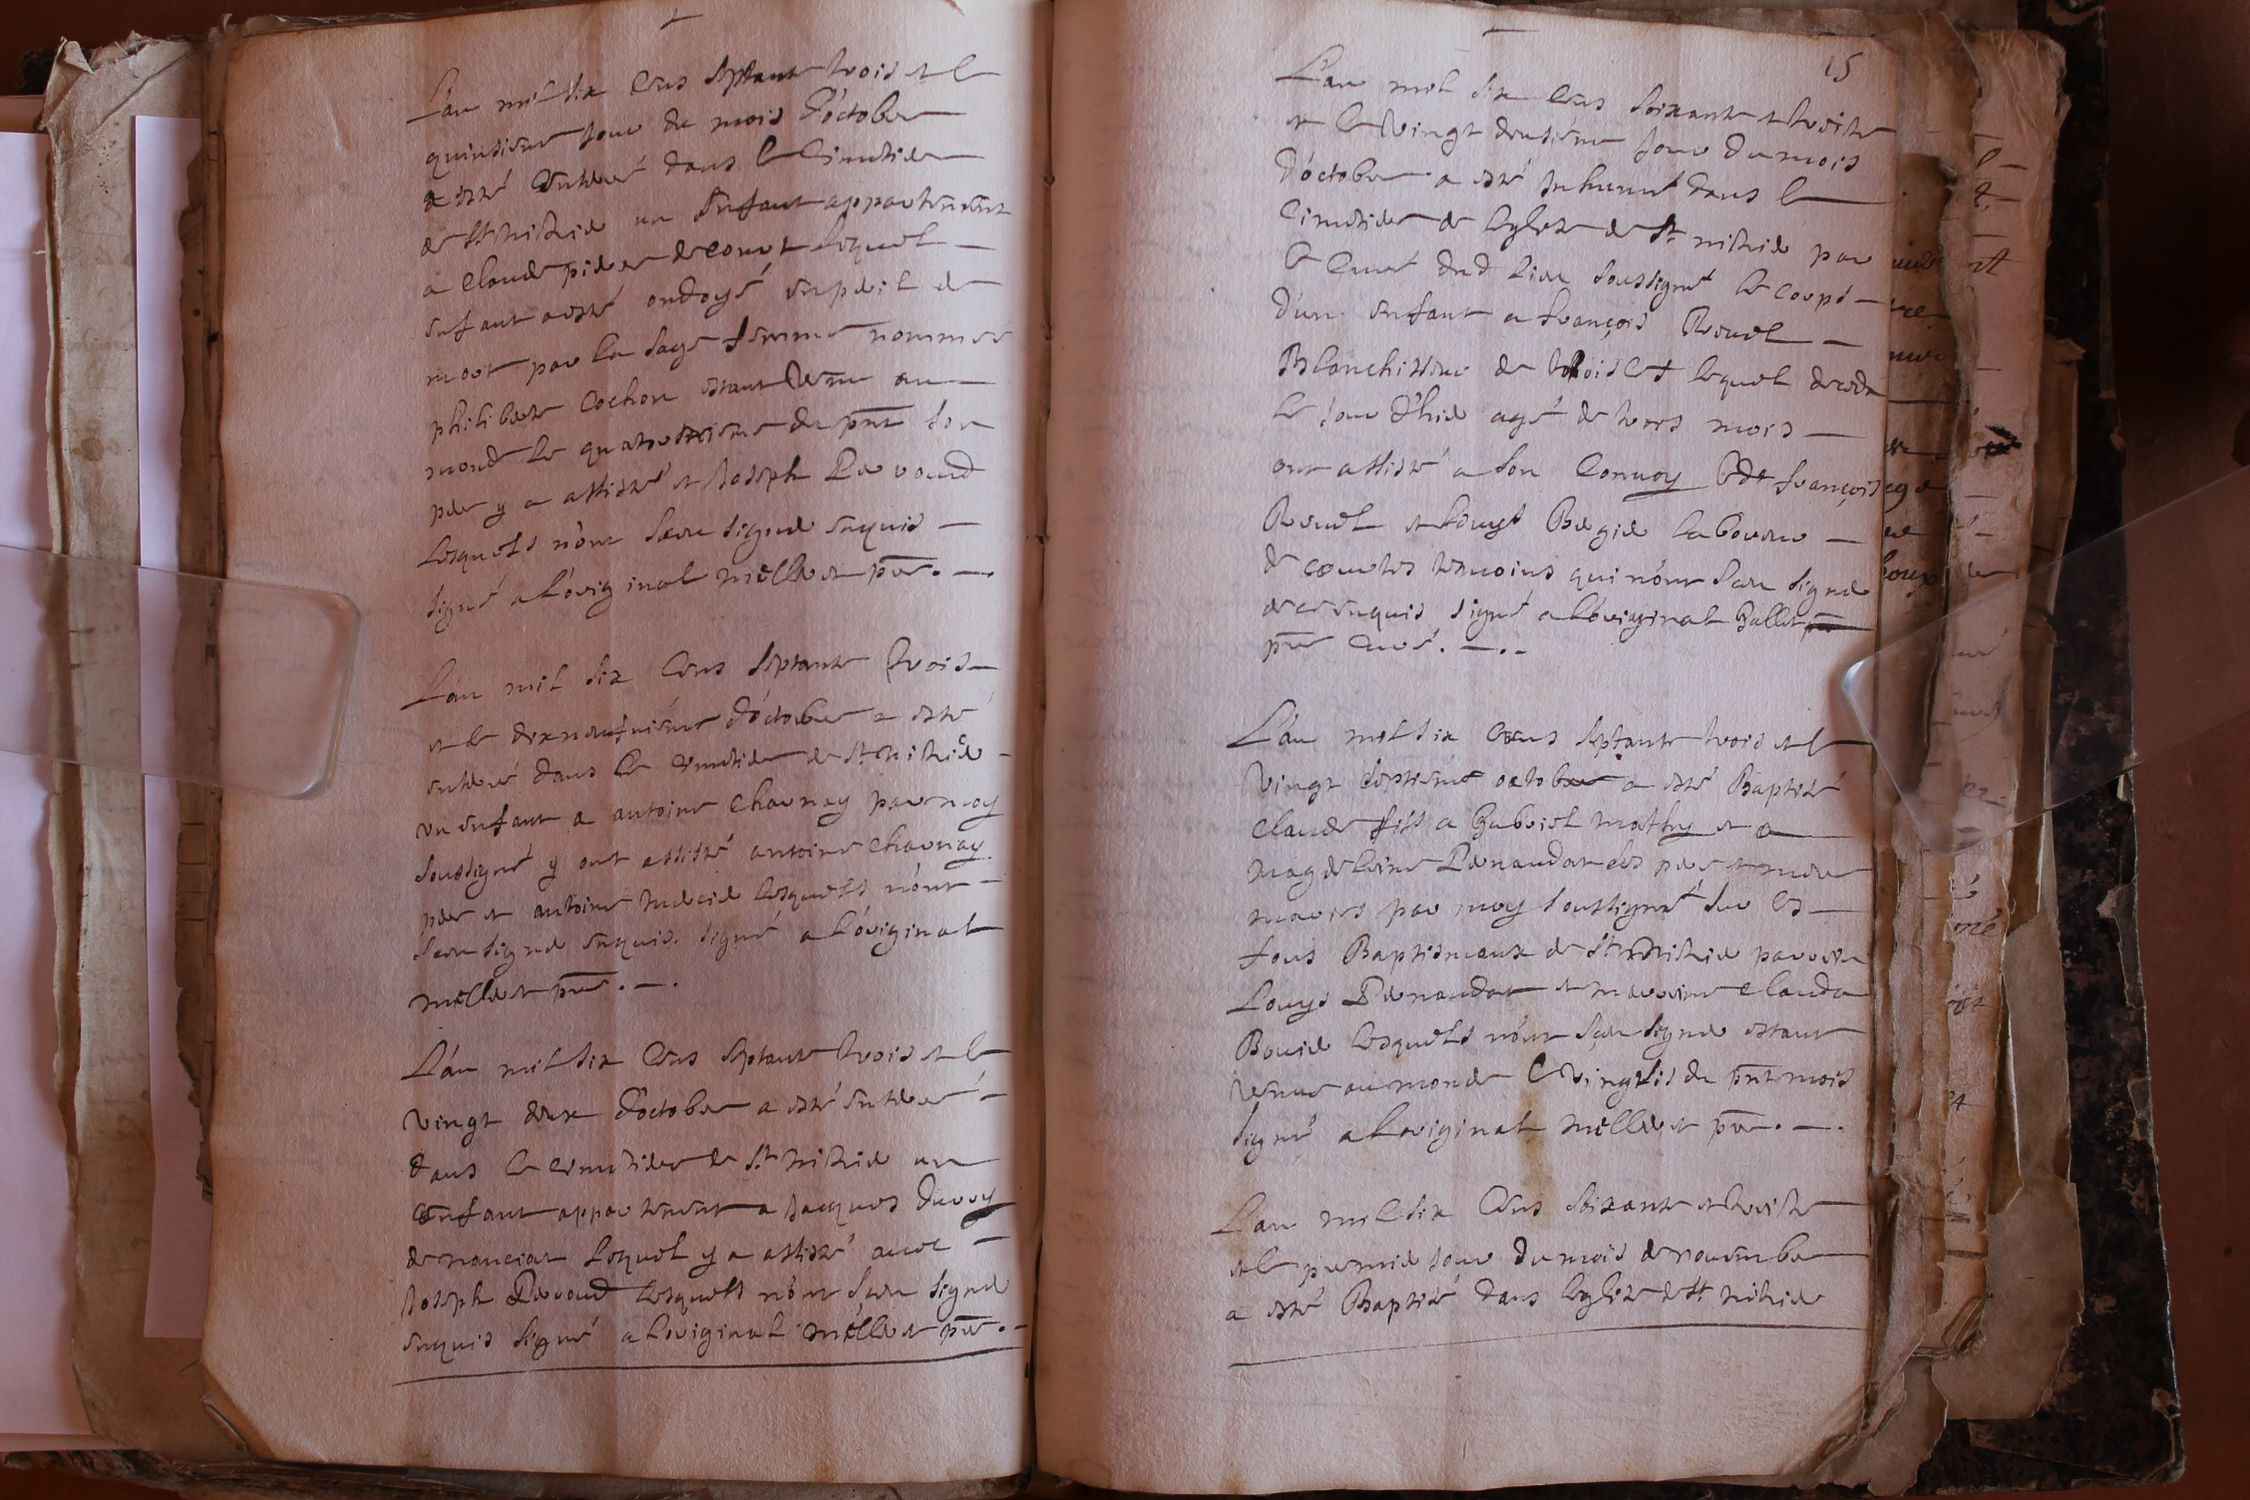 L'an mil six cens septante trois et le
quinsiesme jour du mois d'octobre
a esté enterré dans le cimetiere
de St nithier un enfant appartenent
a claude pider de court lequel
enfant a esté ondoyé en peril de
mort par la sage femme nommee
philiberte cochon estant venu au
monde le quatorsiesme du pnt son
pere y a assisté et Joseph Revoud
lesquels n'ont sceu signer enquis
signé a l'original mellret pre.
L'an mil six cens septante trois
et le dixneufviesme d'octobre a esté
enterré dans le cimetiere de St nithier
un enfant a antoine charnay par moy
soussigné y ont assisté antoine charnay
pere et antoine mercier lesquels n'ont
sceu signer enquis signé a l'original
mellret pre.
L'an mil six cens septante trois et le
vingt deux d'octobre a esté enterré
dans le cemetiere de St nithier un
enfant appartenent a Jacques duroy
de nanciat lequel y a assisté avec
Joseph Revoud lesquels n'ont sceu signer
enquis signé a l'original mellret pre.
15
L'an mil six cens soixante et treise
et le vingt deusiesme jour du mois
d'octobre a esté inhumé dans le
cimetiere de l'eglise de St nithier par
le curé dud lieu soussigné le corps
d'un enfant a françois Revel
Blanchisseur de lequel deceda
le jour d'hier agé de trois mois
ont assisté a son convoy led françois
Revel et Louys Begier laboureur
de temoins qui n'ont sceu signer
de ce enquis signé a l'original Ballet
pre curé.
L'an mil six cens septante trois et le
vingt septiesme octobre a esté Baptisé
claude fils a Gabriel mathy et a
magdeleine Renaudat ses pere et mere
mariés par moy soussigné sur les
fons Baptismaux de St nithier parrein
Louys Renaudat et marreine clauda
Bouvier lesquels n'ont sceu signer estant
venue au monde le vingt sis du pnt mois
signé a l'original mellret pre.
L'an mil six cens soixante et treise
et le premier jour du mois de novembre
a esté Baptisé dans l'eglise de St nithier